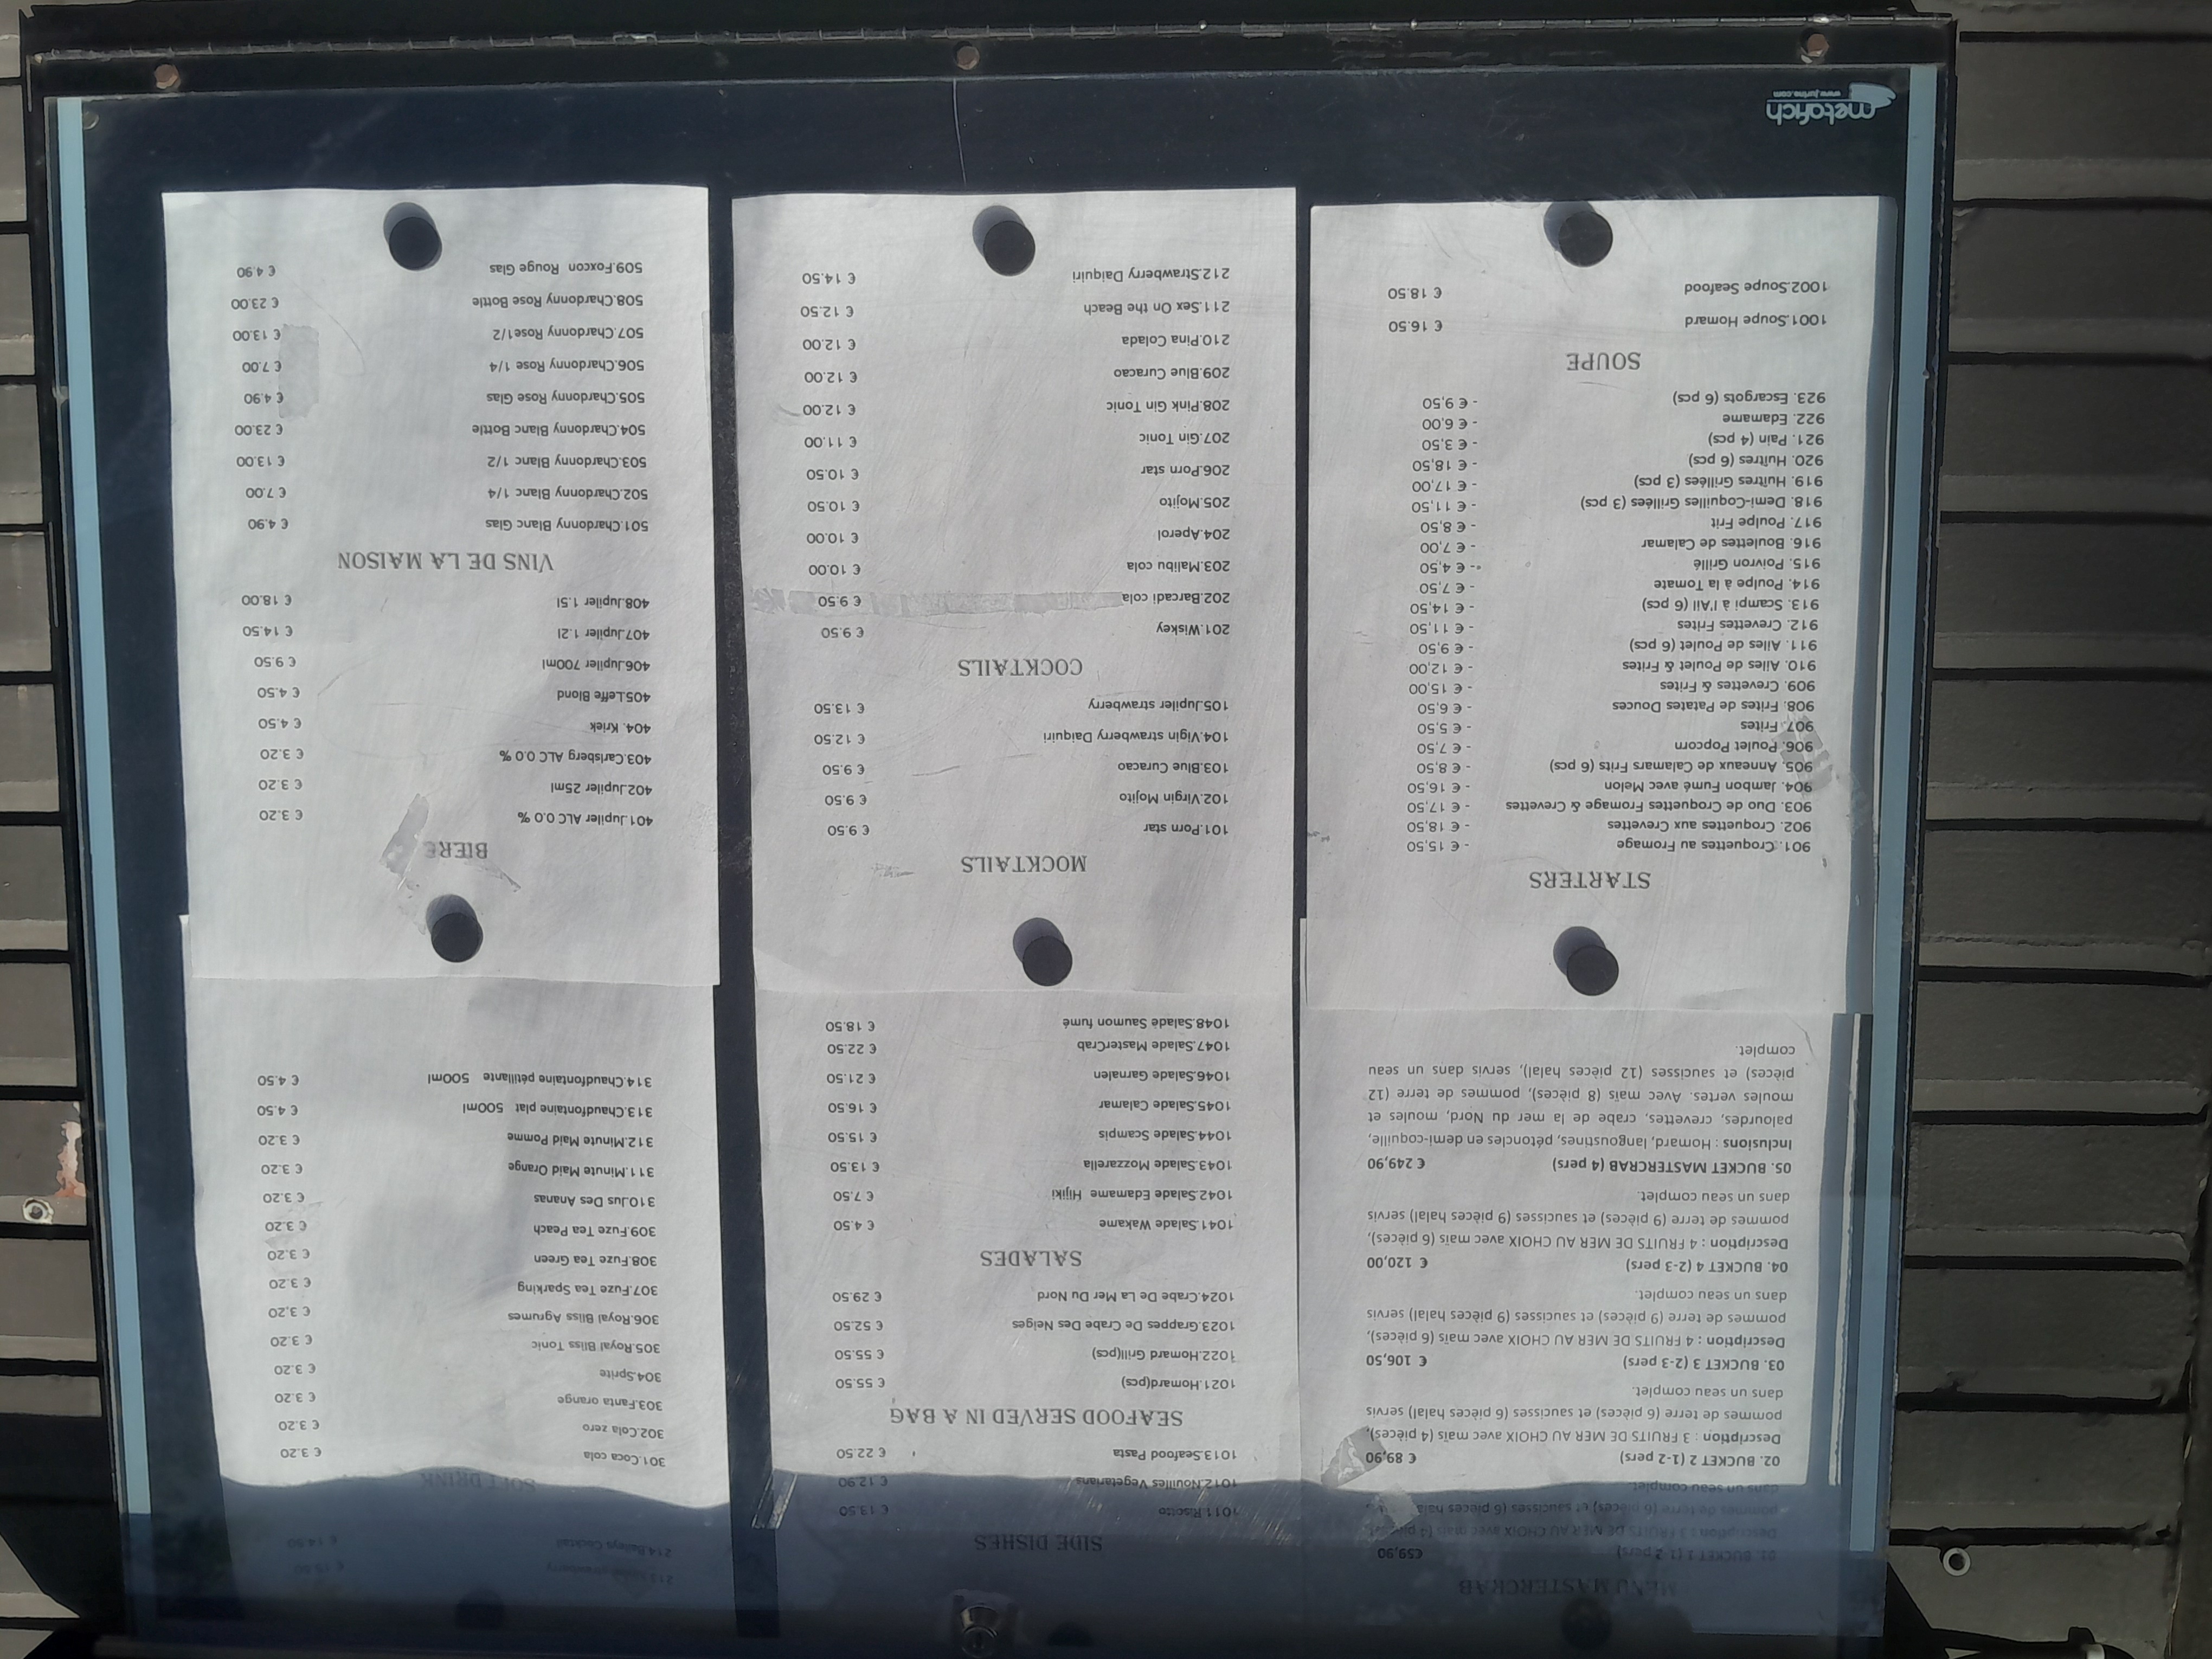 MENU MASTERCRAB
01. BUCKET 1 (1-2 pers) €59,90
Description : 3 FRUITS DE MER AU CHOIX avec maïs (4 pièces),
pommes de terre (6 pièces) et saucisses (6 pièces halal) servis
dans un seau complet.
02. BUCKET 2 (1-2 pers) € 89,90
Description : 3 FRUITS DE MER AU CHOIX avec maïs (4 pièces),
pommes de terre (6 pièces) et saucisses (6 pièces halal) servis
dans un seau complet.
03. BUCKET 3 (2-3 pers) € 106,50
Description : 4 FRUITS DE MER AU CHOIX avec maïs (6 pièces),
pommes de terre (9 pièces) et saucisses (9 pièces halal) servis
dans un seau complet.
04. BUCKET 4 (2-3 pers) € 120,00
Description : 4 FRUITS DE MER AU CHOIX avec maïs (6 pièces),
pommes de terre (9 pièces) et saucisses (9 pièces halal) servis
dans un seau complet.
05. BUCKET MASTERCRAB (4 pers) € 249,90
Inclusions : Homard, langoustines, pétoncles en demi-coquille,
palourdes, crevettes, crabe de la mer du Nord, moules et
moules vertes. Avec maïs (8 pièces), pommes de terre (12
pièces) et saucisses (12 pièces halal), servis dans un seau
complet.
STARTERS
901. Croquettes au Fromage - € 15,50
902. Croquettes aux Crevettes - € 18,50
903. Duo de Croquettes Fromage & Crevettes - € 17,50
904. Jambon Fumé avec Melon - € 16,50
905. Anneaux de Calamars Frits (6 pcs) - € 8,50
906. Poulet Popcorn - € 7,50
907. Frites - € 5,50
908. Frites de Patates Douces - € 6,50
909. Crevettes & Frites - € 15,00
910. Ailes de Poulet & Frites - € 12,00
911. Ailes de Poulet (6 pcs) - € 9,50
912. Crevettes Frites - € 11,50
913. Scampi à l'Ail (6 pcs) - € 14,50
914. Poulpe à la Tomate - € 7,50
915. Poivron Grillé - € 4,50
916. Boulettes de Calamar - € 7,00
917. Poulpe Frit - € 8,50
918. Demi-Coquilles Grillées (3 pcs) - € 11,50
919. Huîtres Grillées (3 pcs) - € 17,00
920. Huîtres (6 pcs) - € 18,50
921. Pain (4 pcs) - € 3,50
922. Edamame - € 6,00
923. Escargots (6 pcs) - € 9,50
SOUPE
1001.Soupe Homard € 16.50
1002.Soupe Seafood € 18.50
SIDE DISHES
1011.Risotto € 13.50
1012.Nouilles Vegetariens € 12.90
1013.Seafood Pasta € 22.50
SEAFOOD SERVED IN A BAG
1021.Homard(pcs) € 55.50
1022.Homard Grill(pcs) € 55.50
1023.Grappes De Crabe Des Neiges € 52.50
1024.Crabe De La Mer Du Nord € 29.50
SALADES
1041.Salade Wakame € 4.50
1042.Salade Edamame Hijiki € 7.50
1043.Salade Mozzarella € 13.50
1044.Salade Scampis € 15.50
1045.Salade Calamar € 16.50
1046.Salade Garnalen € 21.50
1047.Salade MasterCrab € 22.50
1048.Salade Saumon fumé € 18.50
MOCKTAILS
101.Porn star € 9.50
102.Virgin Mojito € 9.50
103.Blue Curacao € 9.50
104.Vigin strawberry Daiquiri € 12.50
105.Jupiler strawberry € 13.50
COCKTAILS
201.Wiskey € 9.50
202.Barcadi cola € 9.50
203.Malibu cola € 10.00
204.Aperol € 10.00
205.Mojito € 10.50
206.Porn star € 10.50
207.Gin Tonic € 11.00
208.Pink Gin Tonic € 12.00
209.Blue Curacao € 12.00
210.Pina Colada € 12.00
211.Sex On the Beach € 12.50
212.Strawberry Daiquiri € 14.50
214.Baileys Cocktail € 14.50
SOFT DRINK
301.Coca cola € 3.20
302.Cola zero € 3.20
303.Fanta orange € 3.20
304.Sprite € 3.20
305.Royal Bliss Tonic € 3.20
306.Royal Bliss Agrumes € 3.20
307.Fuze Tea Sparking € 3.20
308.Fuze Tea Green € 3.20
309.Fuze Tea Peach € 3.20
310.Jus Des Ananas € 3.20
311.Minute Maid Orange € 3.20
312.Minute Maid Pomme € 3.20
313.Chaudfontaine plat 500ml € 4.50
314.Chaudfontaine pétillante 500ml € 4.50
BIERE
401.Jupiler ALC 0.0 % € 3.20
402.Jupiler 25ml € 3.20
403.Carlsberg ALC 0.0 % € 3.20
404. Kriek € 4.50
405.Leffe Blond € 4.50
406.Jupiler 700ml € 9.50
407.Jupiler 1.2l € 14.50
408.Jupiler 1.5l € 18.00
VINS DE LA MAISON
501.Chardonny Blanc Glas € 4.90
502.Chardonny Blanc 1/4 € 7.00
503.Chardonny Blanc 1/2 € 13.00
504.Chardonny Blanc Bottle € 23.00
505.Chardonny Rose Glas € 4.90
506.Chardonny Rose 1/4 € 7.00
507.Chardonny Rose1/2 € 13.00
508.Chardonny Rose Bottle € 23.00
509.Foxcon Rouge Glas € 4.90
metafich
www.jurine.com